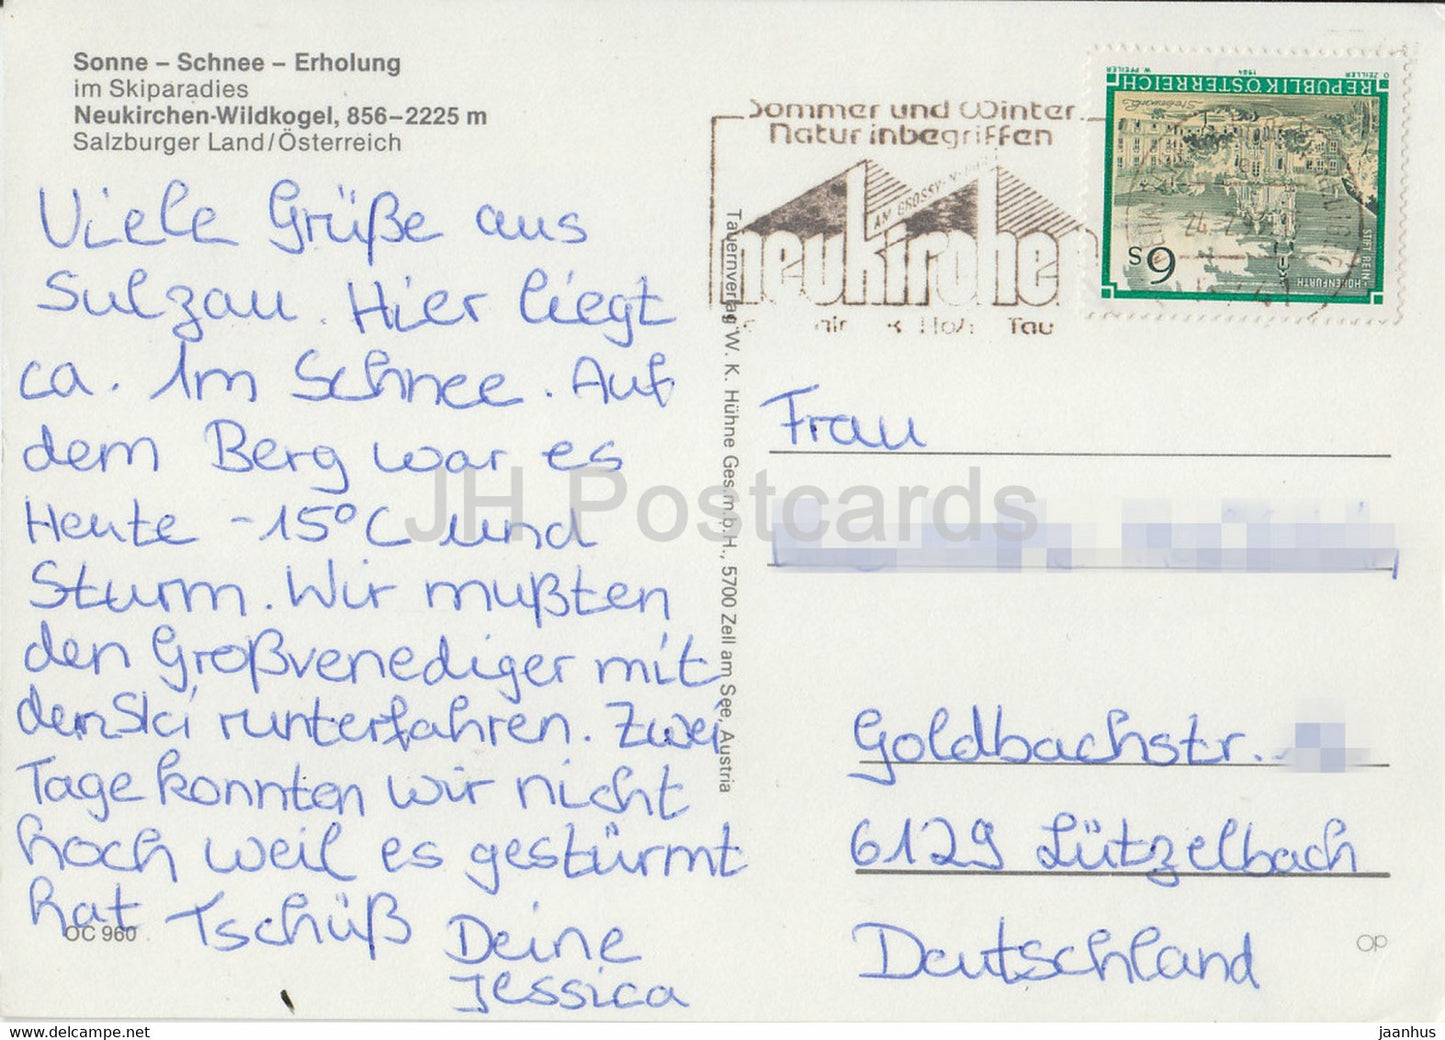 Sonne – Schnee – Erholung
im Skiparadies
Neukirchen-Wildkogel, 856–2225 m
Salzburger Land/Österreich
Viele Grüße aus
Sulzau. Hier liegt
ca. 1m Schnee. Auf
dem Berg war es
Heute -15°C und
Sturm. Wir mußten
den Großvenediger mit
den Ski runterfahren. Zwei
Tage konnten wir nicht
hoch weil es gestürmt
hat Tschüß Deine
Jessica
OC 960
Tauernverlag W. K. Hühne Ges.m.b.H., 5700 Zell am See, Austria
Sommer und Winter
Natur inbegriffen
AM GROSSVENEDIGER
neukirchen
Tau
REPUBLIK ÖSTERREICH
W. PFEILER 1984 O. ZEILLER
Steiermark
STIFT REIN-HOHENFURTH
6 S
Frau
Goldbachstr.
6129 Lützelbach
Deutschland
OP
JH Postcards
www.delcampe.net
jaanhus